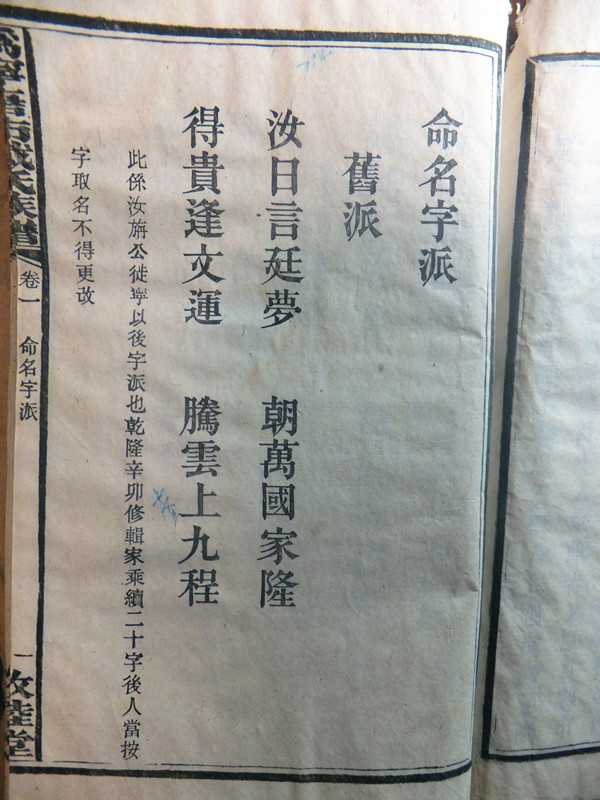 命名字派
舊派
汝日言廷夢 朝萬國家隆
得貴逢文運 騰雲上九程
此係汝旃公徙寧以後字派也乾隆辛卯修輯家乘續二十字後人當按
字取名不得更改
氏族譜
卷一
命名字派
一
敦睦堂